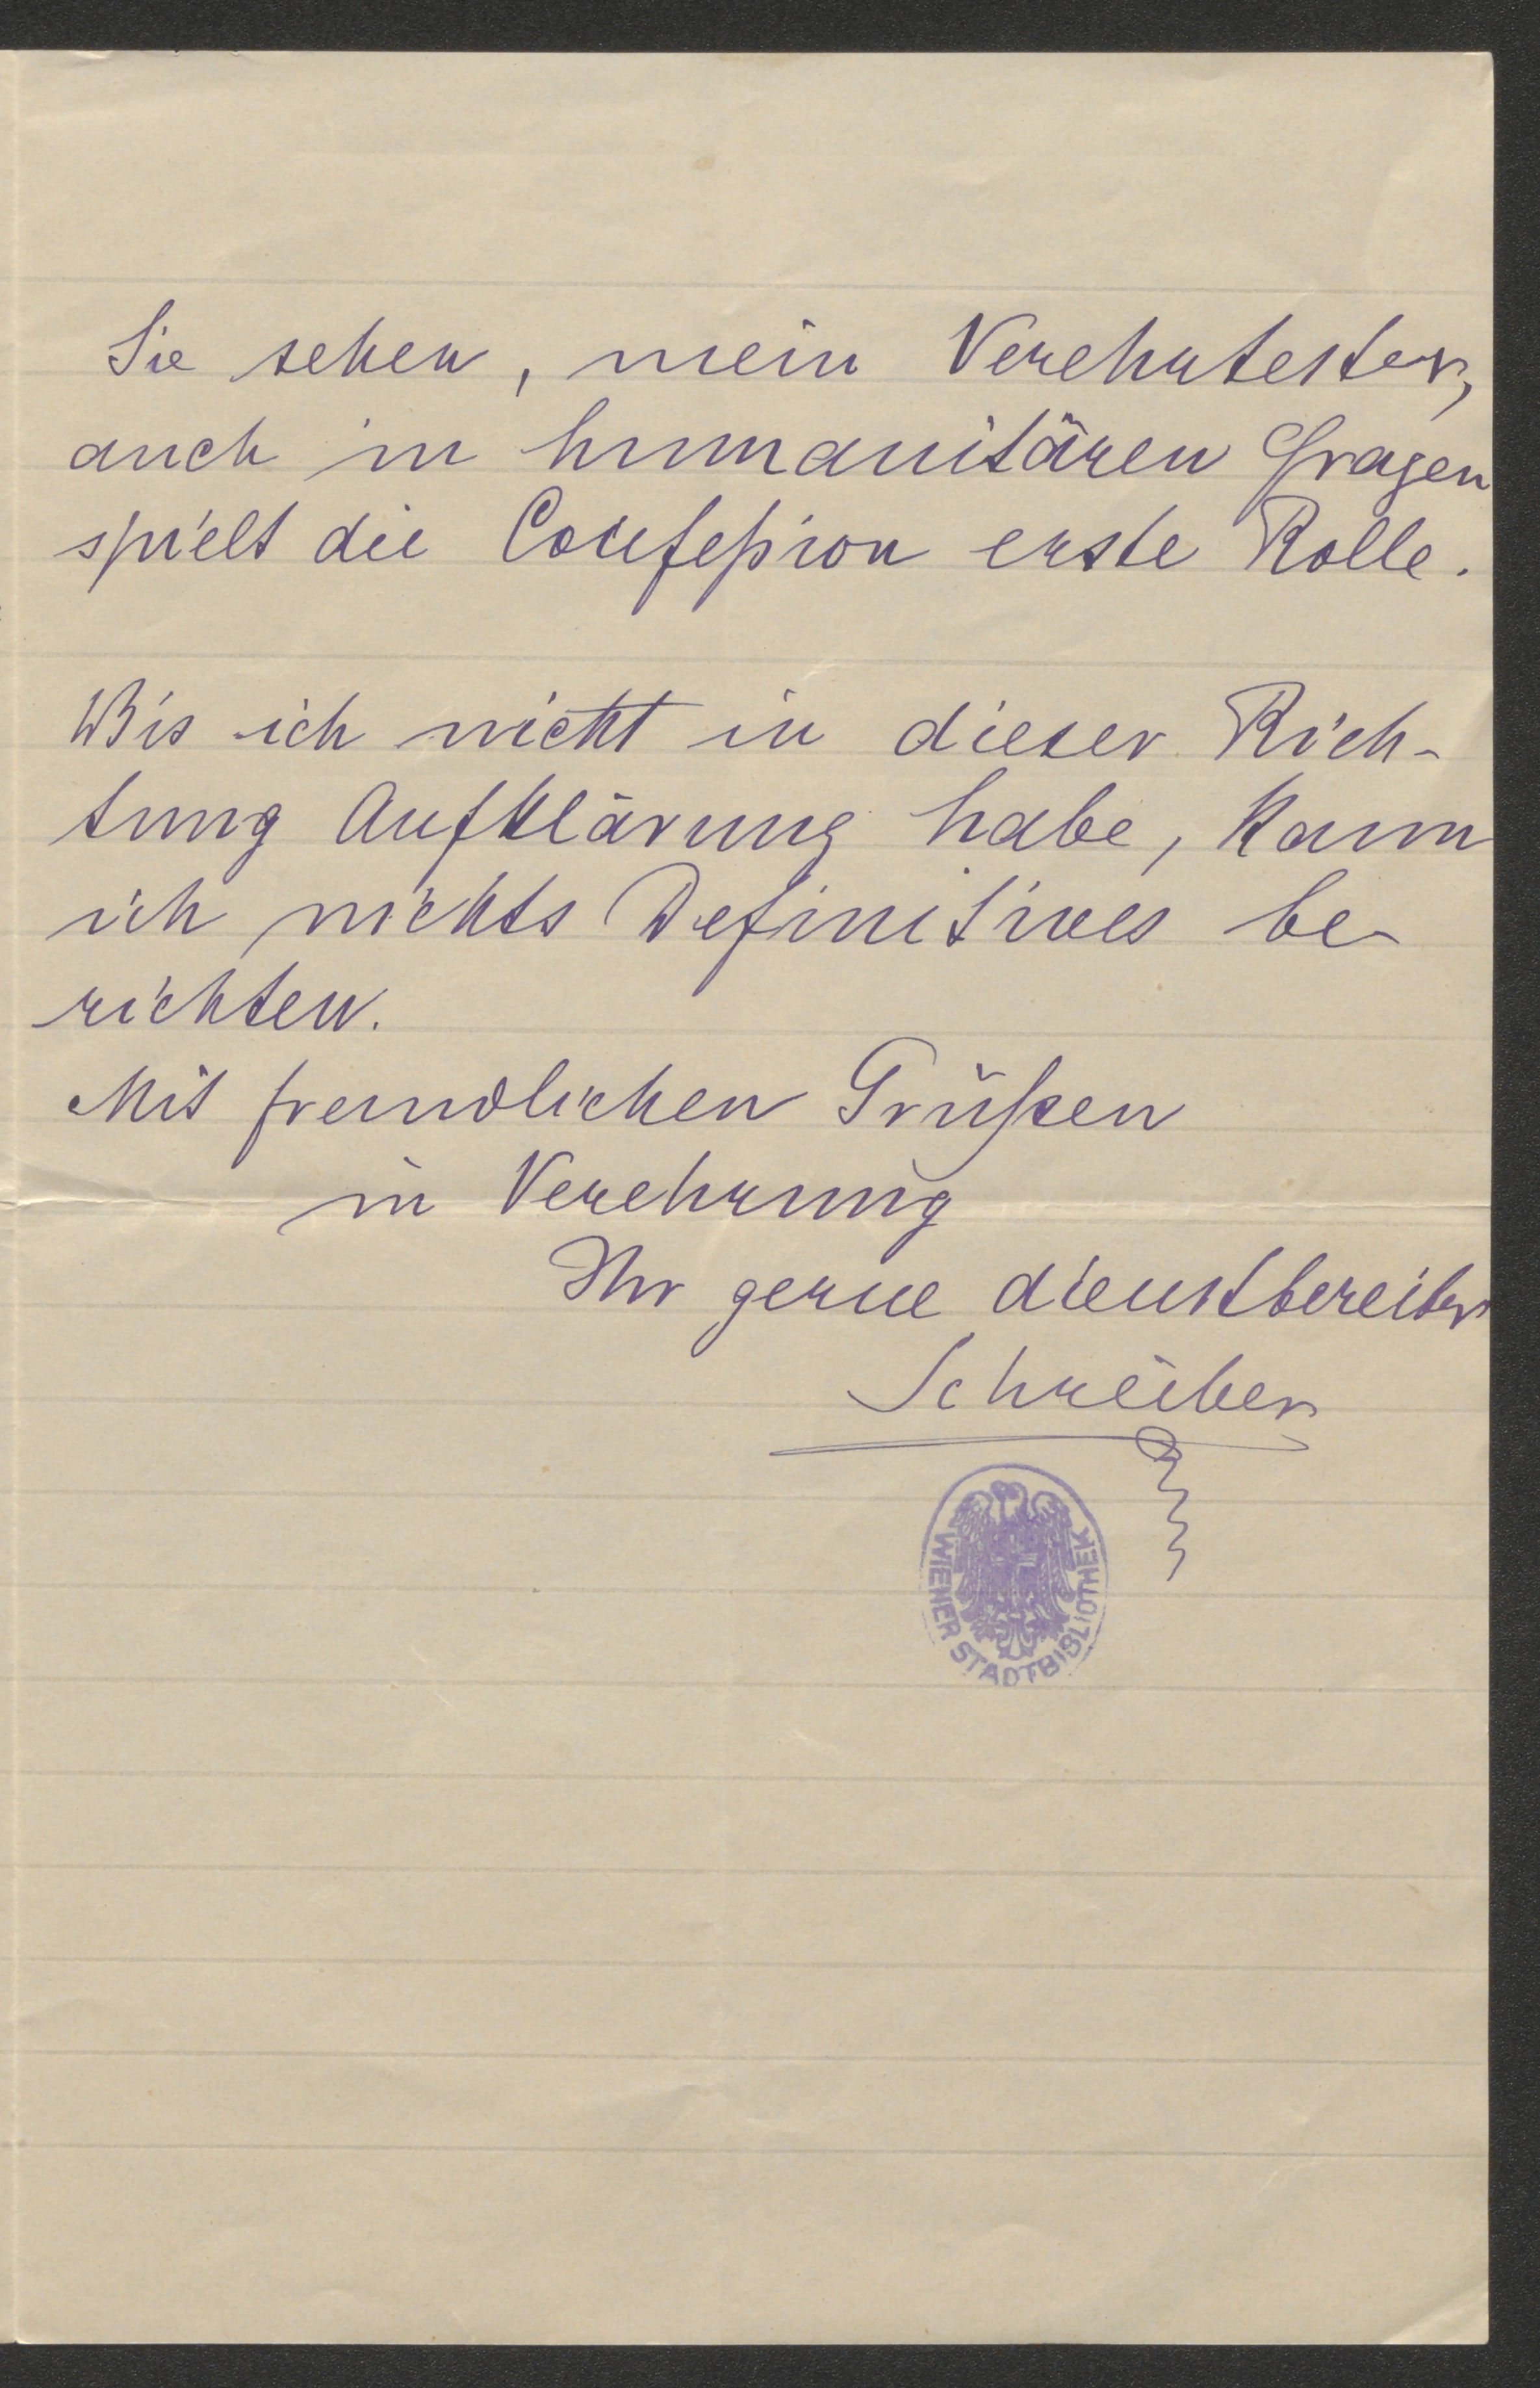 Sie sehen, mein Verehrtester,
auch in humanitären Fragen
spielt die Confeßion erste Rolle.
Bis ich nicht in dieser Rich-
tung Aufklärung habe, kann
ich nichts Definitives be-
richten.
Mit freundlichen Grüßen
in Verehrung
Ihr gerne dienstbereiter
Schreiber
WIENER STADTBIBLIOTHEK